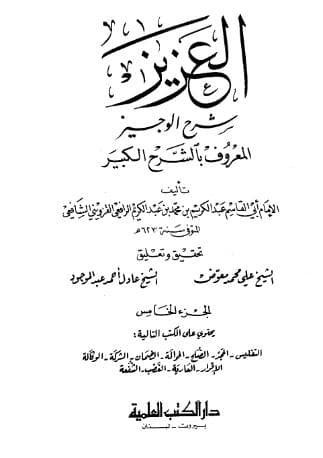 العزيز
شرح الوجيز
المعروف بالشرح الكبير
تأليف
الإمام أبي القاسم عبد الكريم بن محمد بن عبد الكريم الرافعي القزويني الشافعي
المتوفى سنة ٦٢٣ هـ
تحقيق وتعليق
الشيخ علي محمد معوض الشيخ عادل أحمد عبد الموجود
الجزء الخامس
يحتوي على الكتب التالية:
التفليس - الحجر - الصلح - الحوالة - الضمان - الشركة - الوكالة
الإقرار - العارية - الغصب - الشفعة
دار الكتب العلمية
بيروت - لبنان